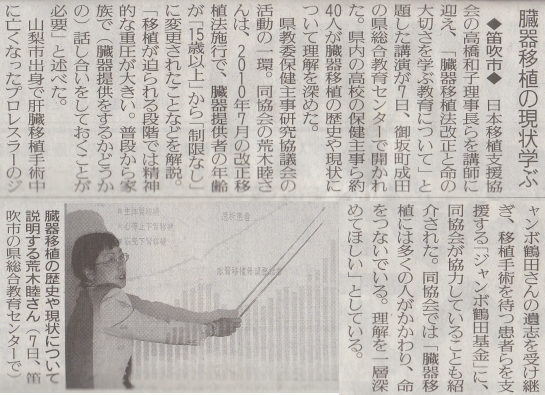 臓器移植の現状学ぶ
◆笛吹市◆　日本移植支援協
会の高橋和子理事長らを講師に
迎え、「臓器移植法改正と命の
大切さを学ぶ教育について」と
題した講演が7日、御坂町成田
の県総合教育センターで開かれ
た。県内の高校の保健主事ら約
40人が臓器移植の歴史や現状に
ついて理解を深めた。
県教委保健主事研究協議会の
活動の一環。同協会の荒木睦さ
んは、2010年7月の改正移
植法施行で、臓器提供者の年齢
が「15歳以上」から「制限なし」
に変更されたことなどを解説。
「移植が迫られる段階では精神
的な重圧が大きい。普段から家
族で（臓器提供をするかどうか
の）話し合いをしておくことが
必要」と述べた。
山梨市出身で肝臓移植手術中
に亡くなったプロレスラーのジ
ャンボ鶴田さんの遺志を受け継
ぎ、移植手術を待つ患者らを支
援する「ジャンボ鶴田基金」に、
同協会が協力していることも紹
介された。同協会では「臓器移
植には多くの人がかかわり、命
をつないでいる。理解を一層深
めてほしい」としている。
臓器移植の歴史や現状について
説明する荒木睦さん（7日、笛
吹市の県総合教育センターで）